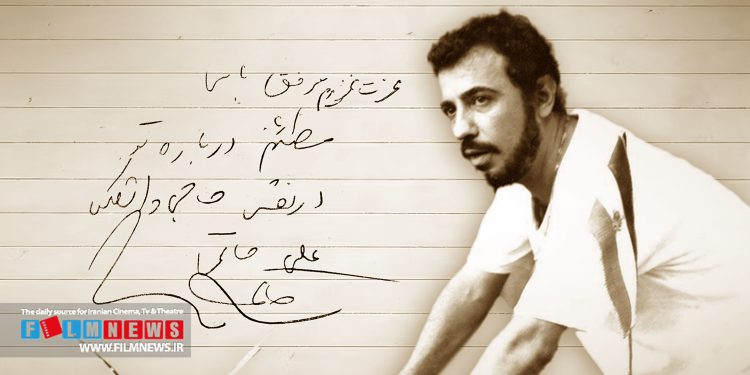 عزت عزیزم موفق باشی
مطمئنم درباره تو
در نقش حاجی واشنگتن
علی حاتمی
The daily source for Iranian Cinema, Tv & Theatre
FILMNEWS
WWW.FILMNEWS.IR